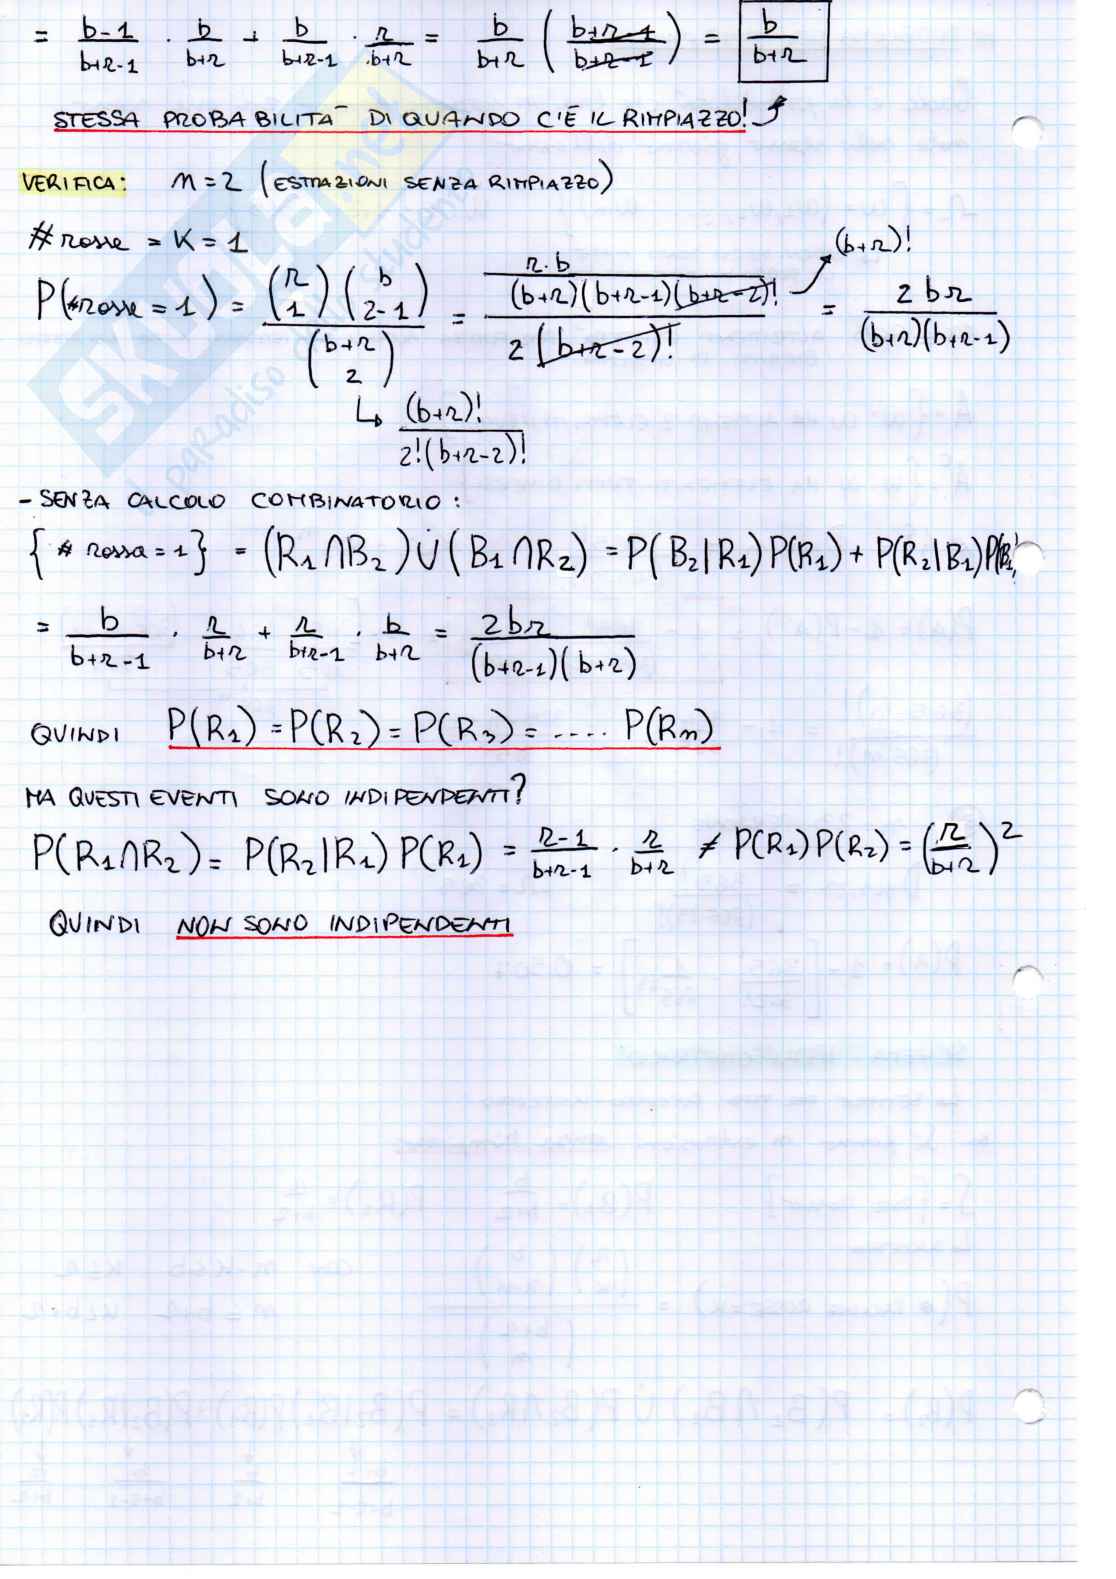 = b-1/b+r-1 · b/b+r + b/b+r-1 · r/b+r = b/b+r (b+r-1/b+r-1) = b/b+r
STESSA PROBABILITÀ DI QUANDO C'È IL RIMPIAZZO!
VERIFICA: n=2 (ESTRAZIONI SENZA RIMPIAZZO)
# rosse = K = 1
P(#rosse = 1) = (r 1)(b 2-1)/(b+r 2) = r·b/(b+r)(b+r-1)(b+r-2)!/2(b+r-2)! → (b+r)! = 2br/(b+r)(b+r-1)
↳ (b+r)!/2!(b+r-2)!
- SENZA CALCOLO COMBINATORIO:
{# rossa = 1} = (R₁∩B₂) ∪̇ (B₁∩R₂) = P(B₂|R₁)P(R₁) + P(R₂|B₁)P(B₁
= b/b+r-1 · r/b+r + r/b+r-1 · b/b+r = 2br/(b+r-1)(b+r)
QUINDI P(R₁) = P(R₂) = P(R₃) = .... P(Rn)
MA QUESTI EVENTI SONO INDIPENDENTI?
P(R₁∩R₂) = P(R₂|R₁)P(R₁) = r-1/b+r-1 · r/b+r ≠ P(R₁)P(R₂) = (r/b+r)²
QUINDI NON SONO INDIPENDENTI
SKUOLA.net
paradiso